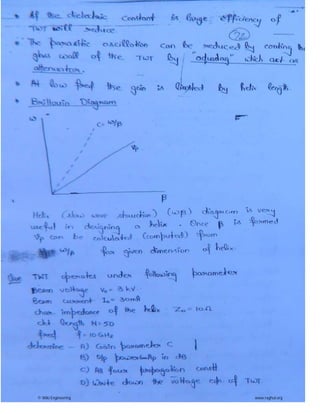 If the dielectric constant is large, efficiency of
TWT will reduce
The parasitic oscillation can be reduced by coating the
glass wall of the TWT by "aquadag" which act as
attenuator.
At low freq the gain is limited by helix length.
Brillouin Diagram
ω
C = ω/β
Vp
β
Helix (slow wave structure) (ω-β) diagram is very
useful in designing a helix. Once β is formed
Vp can be calculated (computed) from
ω/β for given dimension of helix.
TWT operates under following parameters
Beam voltage V₀ = 3 kV.
Beam current I₀ = 30mA
char. impedance of the helix Z₀ = 10Ω
ckt. length N = 50
freq f = 10 GHz
determine - A) Gain parameter C
B) O/p power in dB
C) All four propagation constt
D) Write down the voltage eqn of TWT
© Wiki Engineering
www.raghul.org